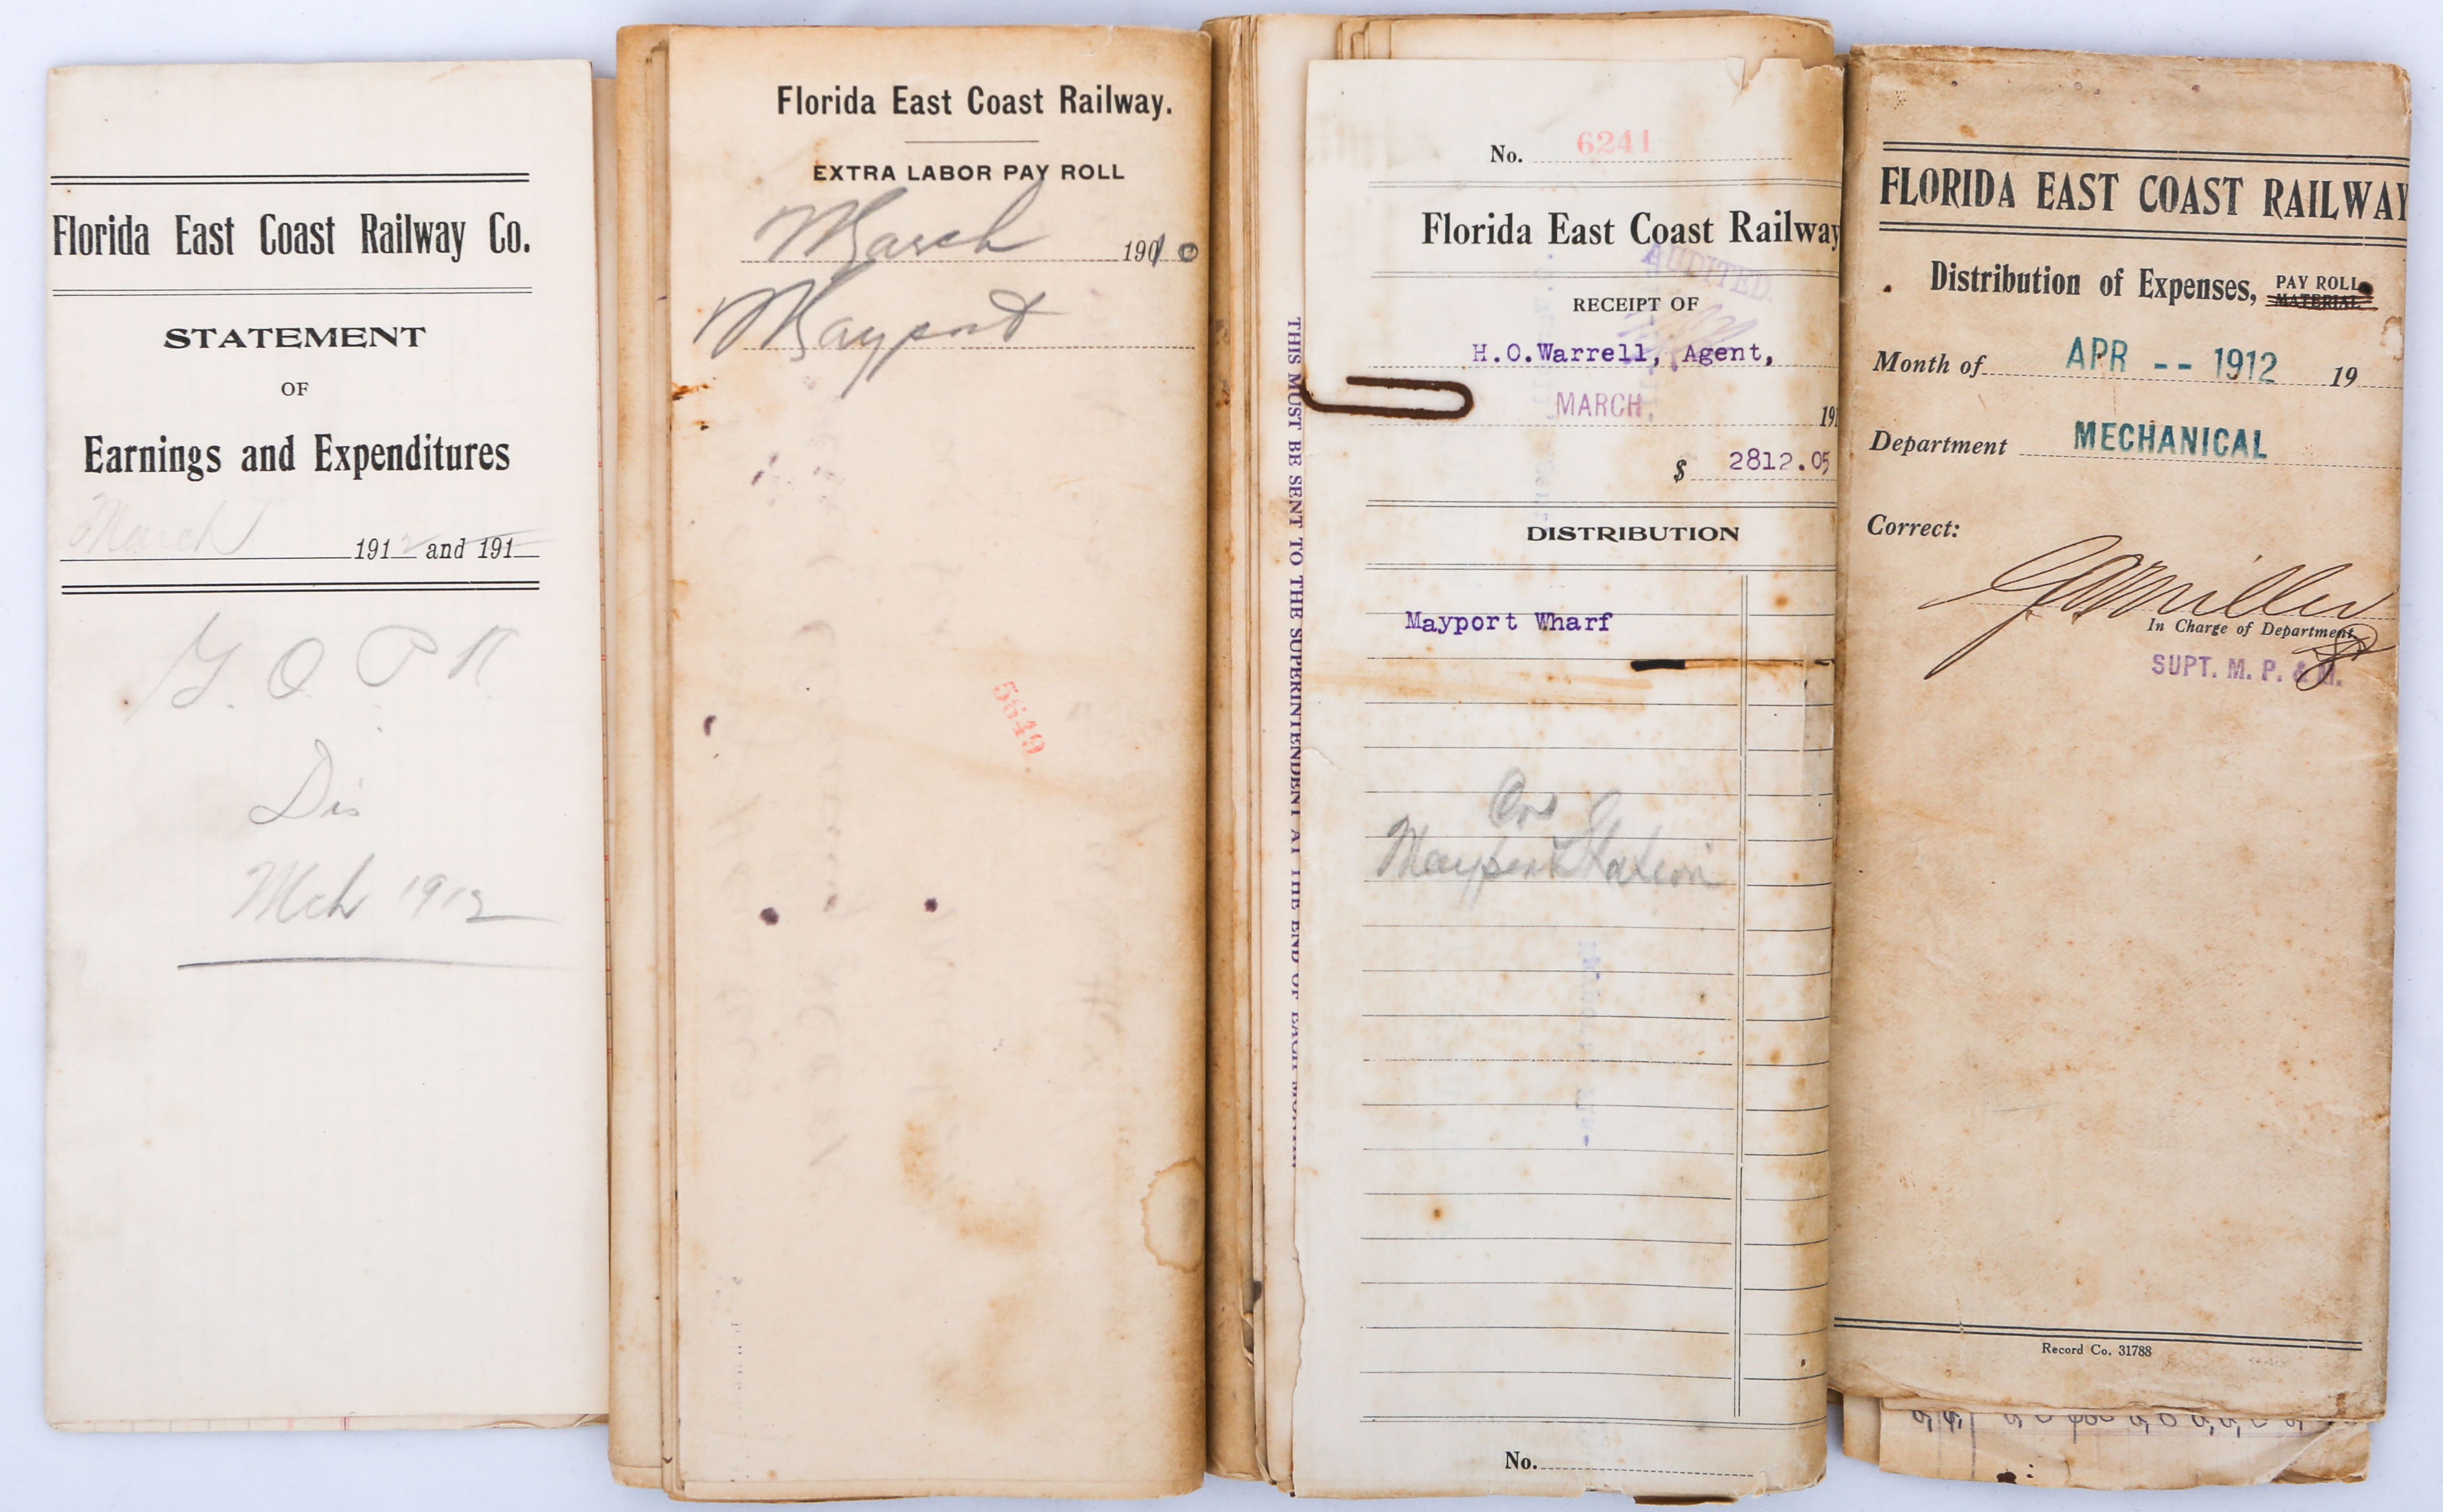 Florida East Coast Railway Co.
STATEMENT
OF
Earnings and Expenditures
March 1912 and 191
G. O. P. R.
Dis
Mch 1912
Florida East Coast Railway.
EXTRA LABOR PAY ROLL
March 1910
Mayport
5649
THIS MUST BE SENT TO THE SUPERINTENDENT AT THE END OF EACH
No. 6241
Florida East Coast Railway
AUDITED.
RECEIPT OF
H.O.Warrell, Agent,
MARCH, 191
$ 2812.05
DISTRIBUTION
Mayport Wharf
Mayport Station
No.
FLORIDA EAST COAST RAILWAY
Distribution of Expenses, PAY ROLL
MATERIAL
Month of APR -- 1912 19
Department MECHANICAL
Correct:
Miller
In Charge of Department
SUPT. M. P. & M.
Record Co. 31788